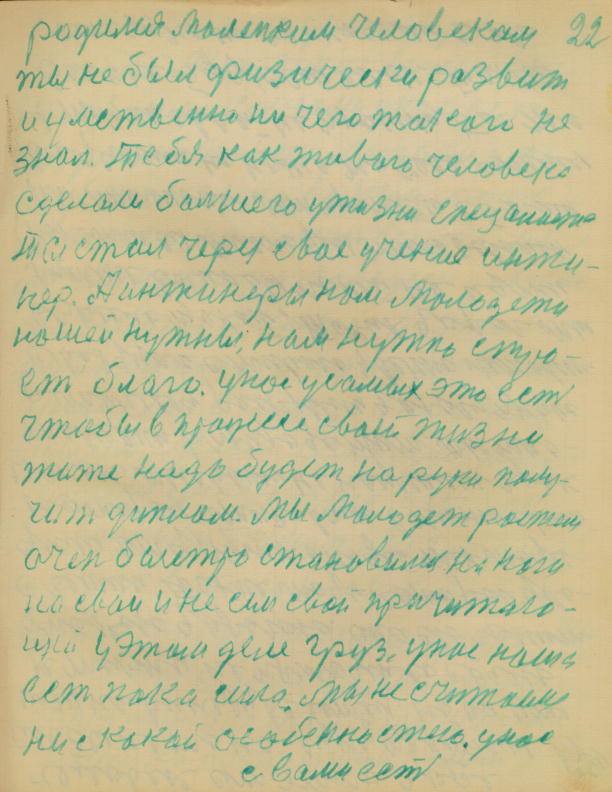 родился Маленким человеком 22
ты не был физически развит
и умственно ни чего такого не
знал. Тебя как живого человека
сделали болшего у жизни специалиста
Ты стал через свое учение инжи-
нер. А инжинеры нам молодежи
нашей нужны, нам нужно стро-
ет благо. у нас у самых это ест
чтобы в процессе своей жизни
тоже надо будет на руки полу-
чит диплом. Мы молодеж ростем
очен быстро становимся на ноги
на свои и несем свой причитаю-
щий у этом деле груз. у нас наша
ест пока сила. Мы не считаемся
ни с какой особенностю. у нас
с вами ест